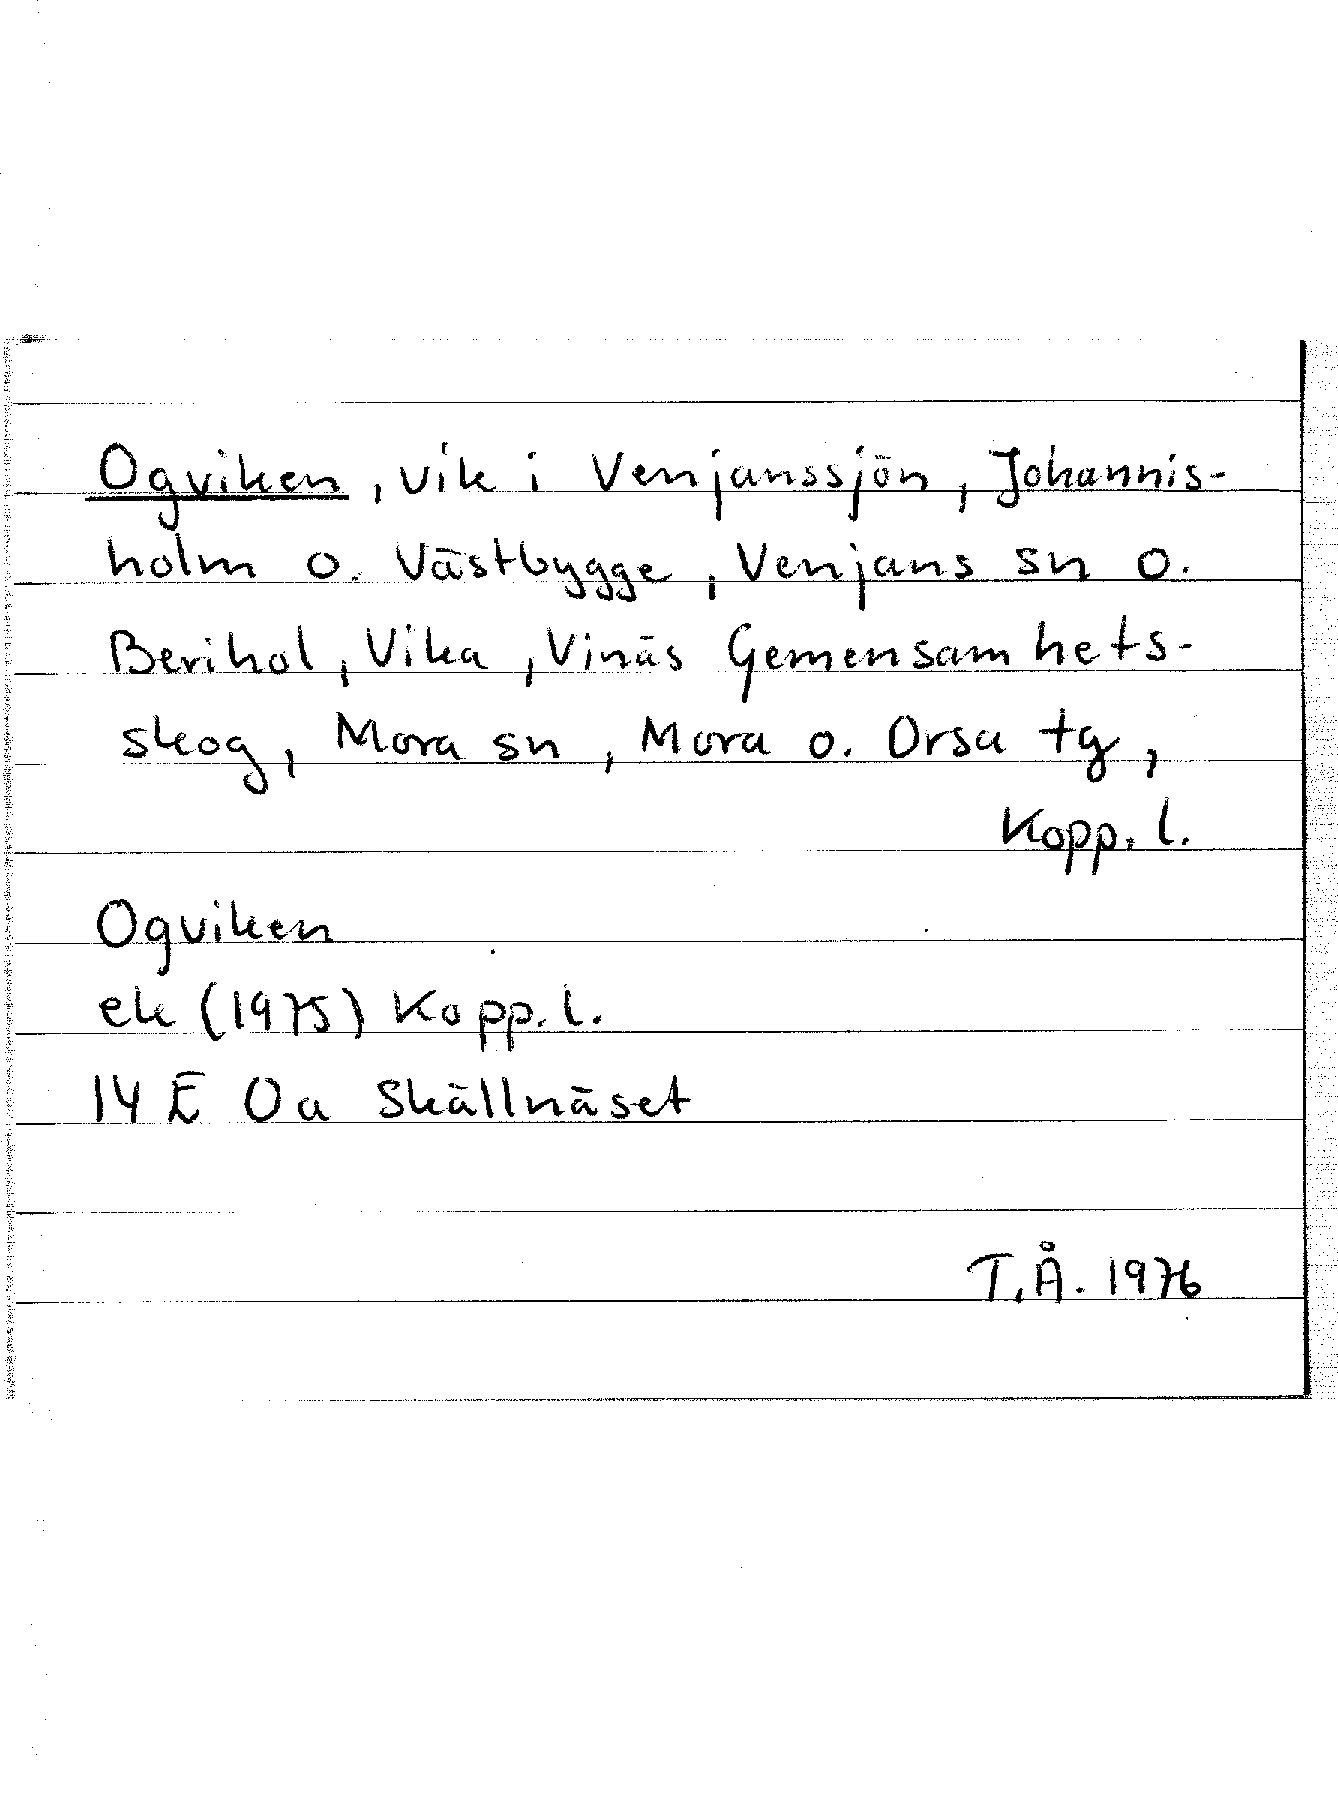 Ogviken, vik i Venjanssjön, Johannis-
holm o. Västbygge, Venjans sn o.
Berikol, Vika, Vinäs Gemensamhets-
skog, Mora sn, Mora o. Orsa tg,
Kopp. l.
Ogviken
ek (1975) Kopp. l.
14 E 0a Skällnäset
T.Å. 1976